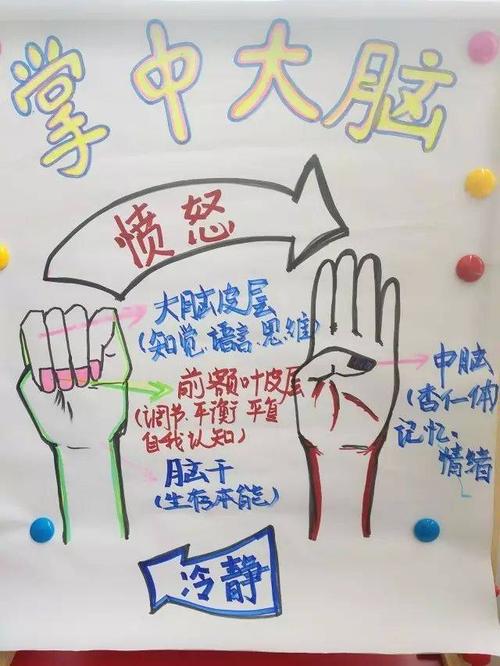 掌中大脑
愤怒
大脑皮层
(知觉.语言.思维)
前额叶皮层
(调节.平衡.平复
自我认知)
脑干
(生存本能)
中脑
(杏仁体)
记忆、
情绪
冷静